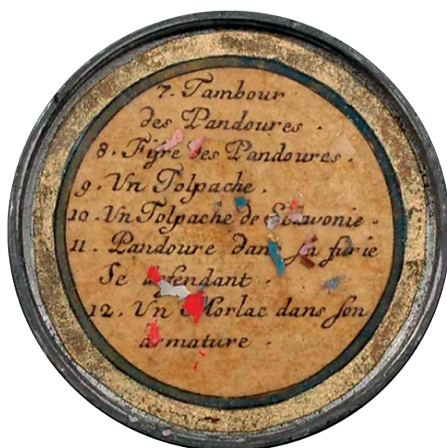 7. Tambour
des Pandoures.
8. Fifre des Pandoures.
9. Un Tolpache.
10. Un Tolpache de Sclavonie.
11. Pandoure dans sa furie
Se defendant.
12. Un Morlac dans son
armature.